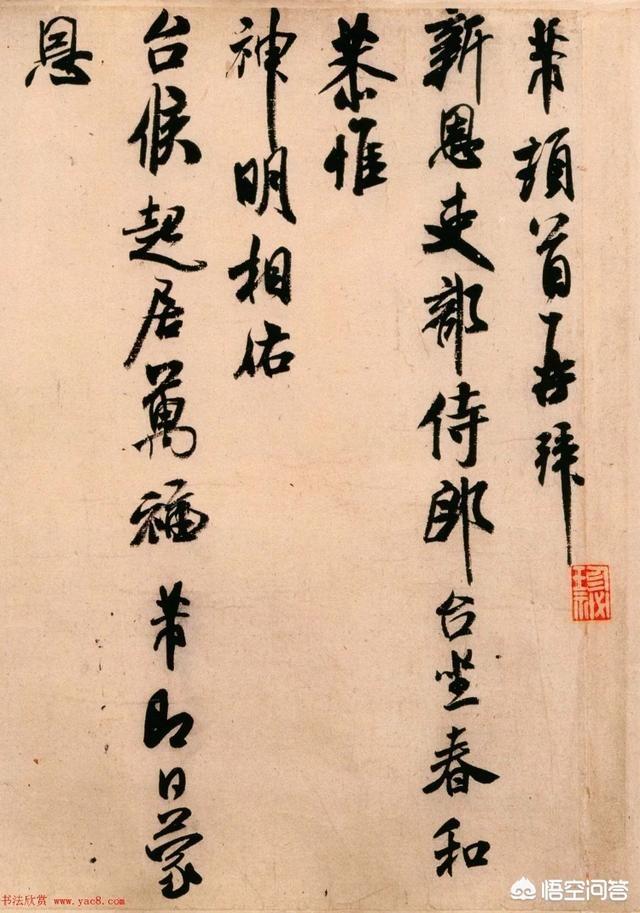 芾頓首再拜
新恩吏部侍郎台坐春和
恭惟
神明相佑
台候起居萬福 芾即日蒙
恩
书法欣赏 www.yac8.com
悟空问答